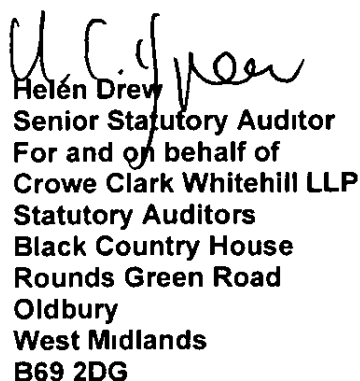 Helen Drew
Senior Statutory Auditor
For and on behalf of
Crowe Clark Whitehill LLP
Statutory Auditors
Black Country House
Rounds Green Road
Oldbury
West Midlands
B69 2DG